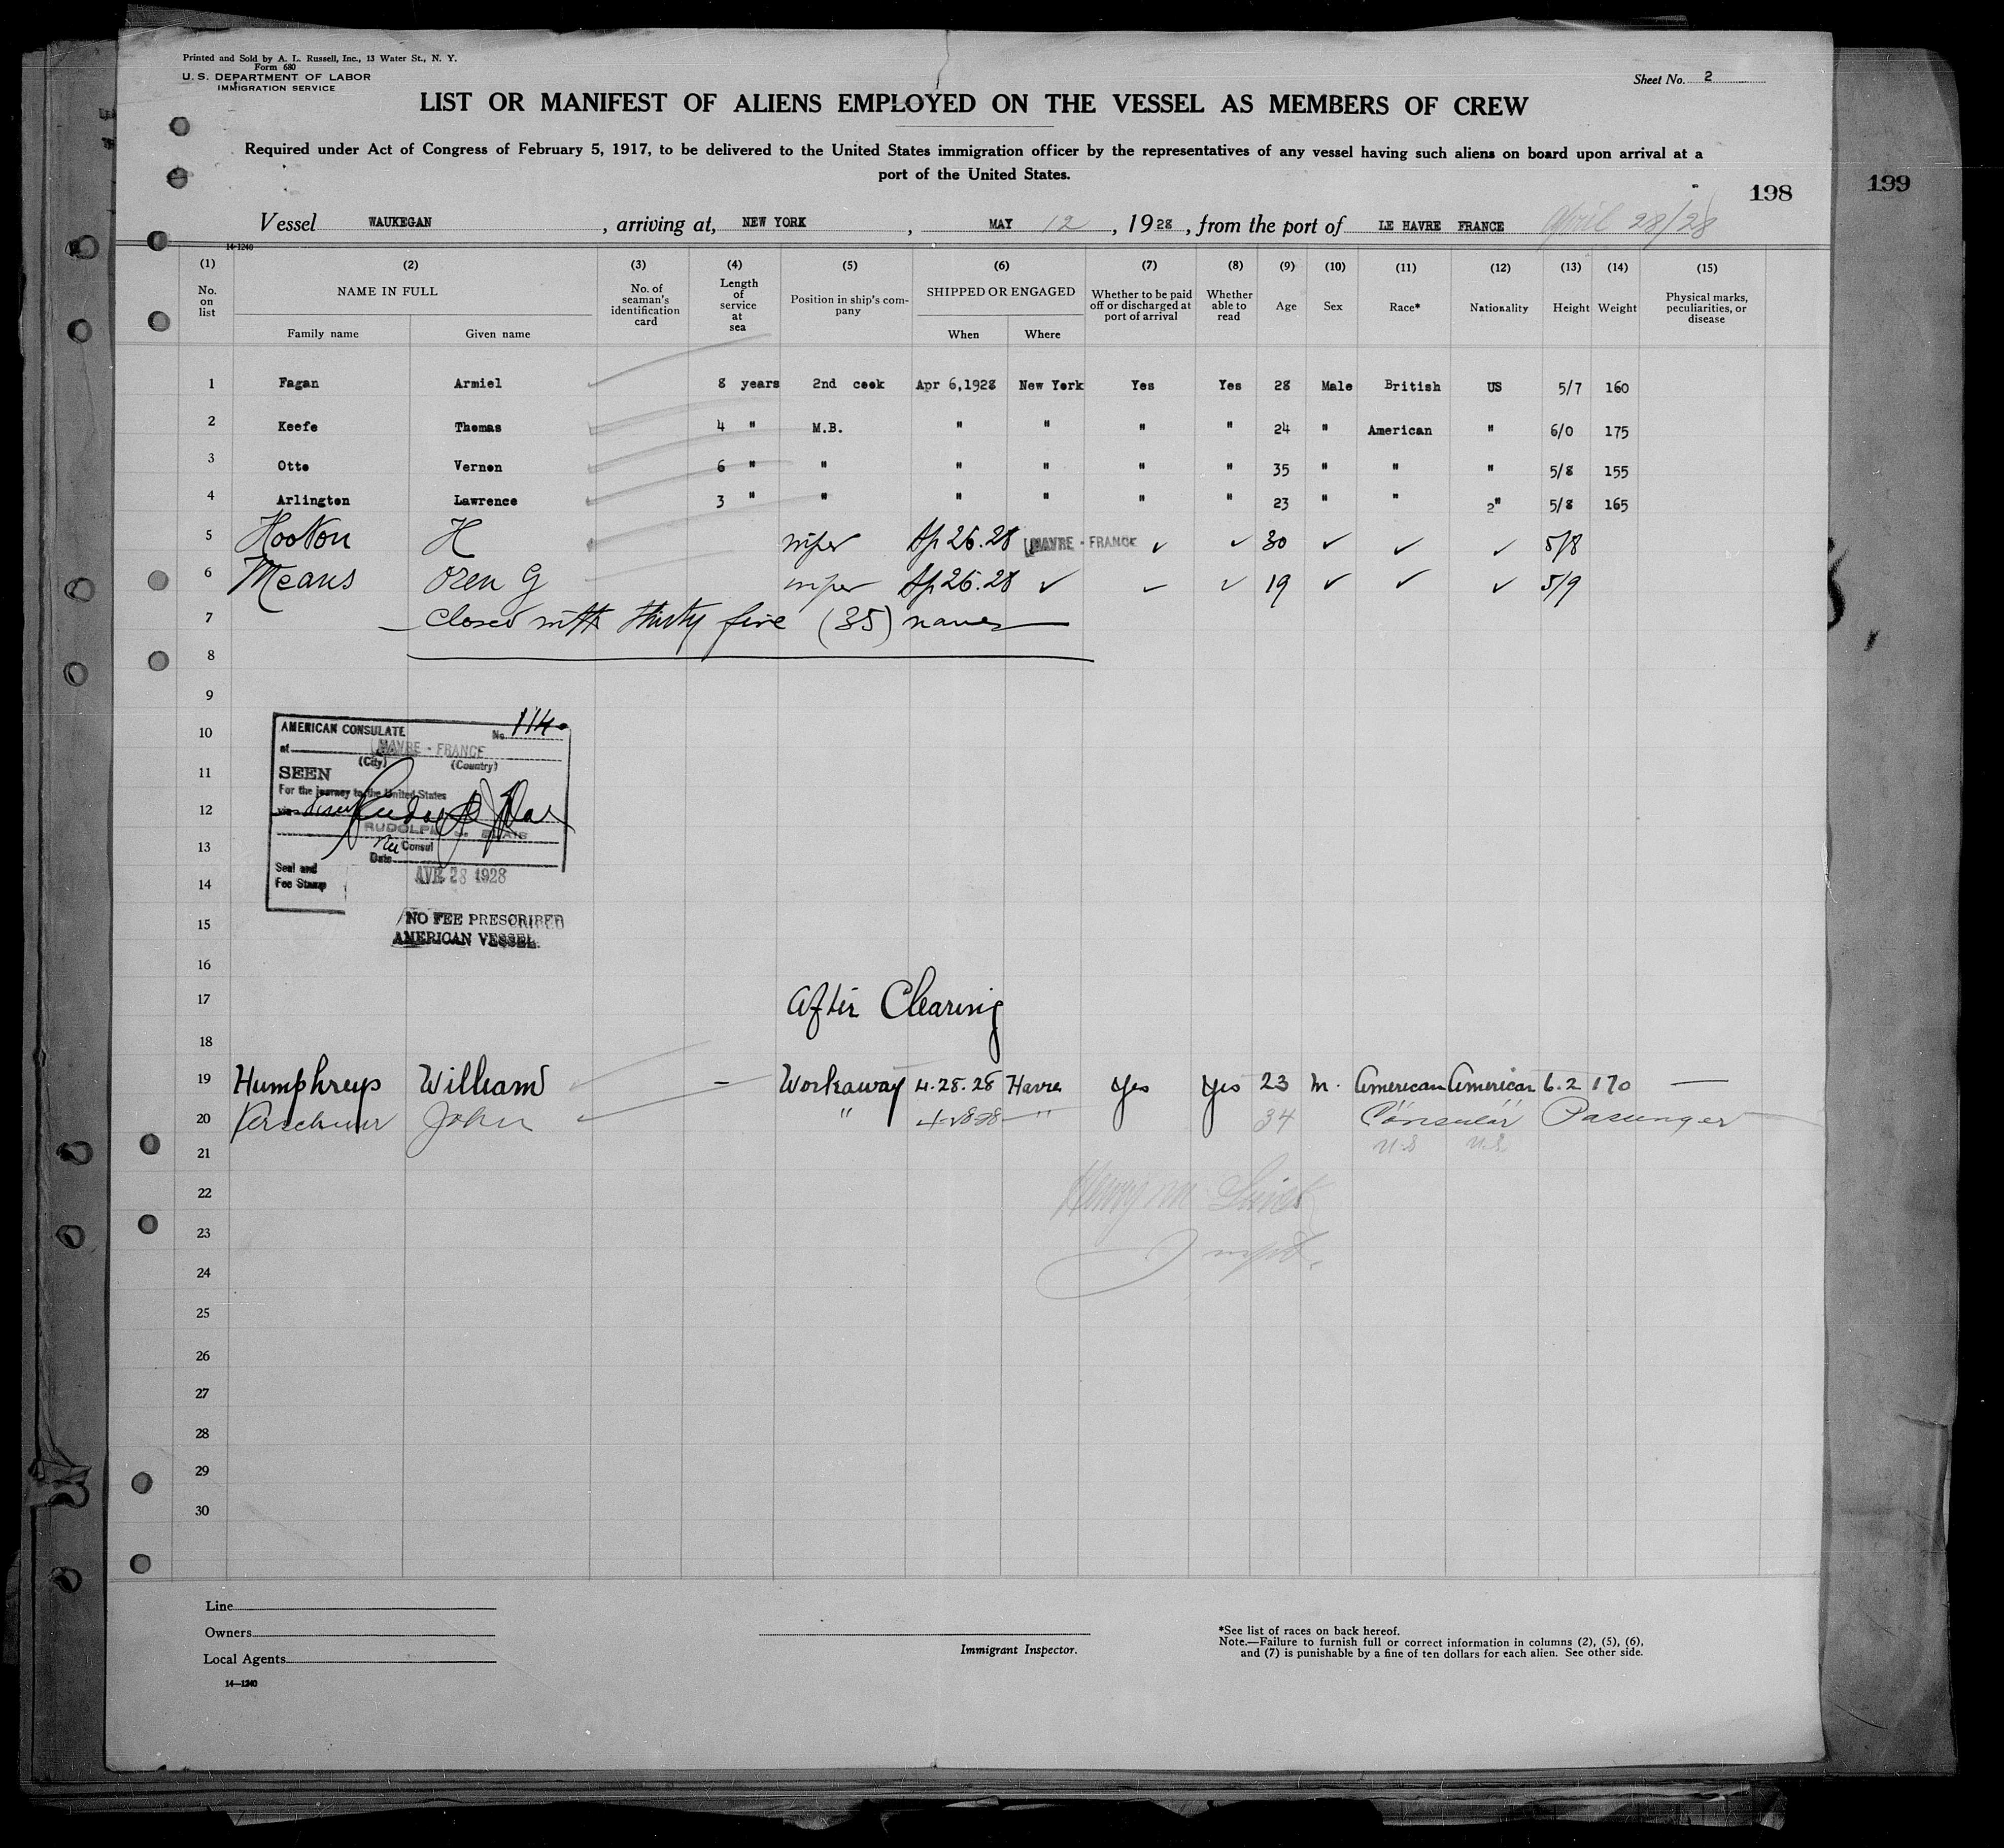 Printed and Sold by A. L. Russell, Inc., 13 Water St., N. Y.
Form 680
U. S. DEPARTMENT OF LABOR
IMMIGRATION SERVICE
Sheet No. 2
LIST OR MANIFEST OF ALIENS EMPLOYED ON THE VESSEL AS MEMBERS OF CREW
Required under Act of Congress of February 5, 1917, to be delivered to the United States immigration officer by the representatives of any vessel having such aliens on board upon arrival at a
port of the United States.
198
199
Vessel WAUKEGAN, arriving at, NEW YORK, MAY 12, 1928, from the port of LE HAVRE FRANCE April 28/28
14-1240
(1) (2) (3) (4) (5) (6) (7) (8) (9) (10) (11) (12) (13) (14) (15)
No. on list NAME IN FULL Family name Given name No. of seaman's identification card Length of service at sea Position in ship's company SHIPPED OR ENGAGED When Where Whether to be paid off or discharged at port of arrival Whether able to read Age Sex Race* Nationality Height Weight Physical marks, peculiarities, or disease
1 Fagan Armiel 8 years 2nd cook Apr 6,1928 New York Yes Yes 28 Male British US 5/7 160
2 Keefe Thomas 4 " M.B. " " " " 24 " American " 6/0 175
3 Otto Vernon 6 " " " " " " 35 " " " 5/8 155
4 Arlington Lawrence 3 " " " " " " 23 " " 2" 5/8 165
5 Hooton H wiper Ap 26.28 HAVRE - FRANCE ✓ ✓ 30 ✓ ✓ ✓ 5/8
6 Means Oren G wiper Ap 26.28 ✓ ✓ ✓ 19 ✓ ✓ ✓ 5/9
7 Closed with thirty five (35) names
8
9
10
11
12
13
14
15
16
AMERICAN CONSULATE No. 114
at HAVRE - FRANCE
(City) (Country)
SEEN
For the journey to the United States
via
RUDOLPH J. BLAIS
Consul
Date
AVR 28 1928
Seal and
Fee Stamp
NO FEE PRESCRIBED
AMERICAN VESSEL.
17 After Clearing
18
19 Humphreys William – Workaway 4.28.28 Havre Yes Yes 23 M. American American 6.2 170 —
20 John " 4-28-28 " 34 " " Consular Passenger
21 U.S U.S
22
23
24
25
26
27
28
29
30
Line
Owners
Local Agents
Immigrant Inspector.
*See list of races on back hereof.
Note.—Failure to furnish full or correct information in columns (2), (5), (6),
and (7) is punishable by a fine of ten dollars for each alien. See other side.
14—1240